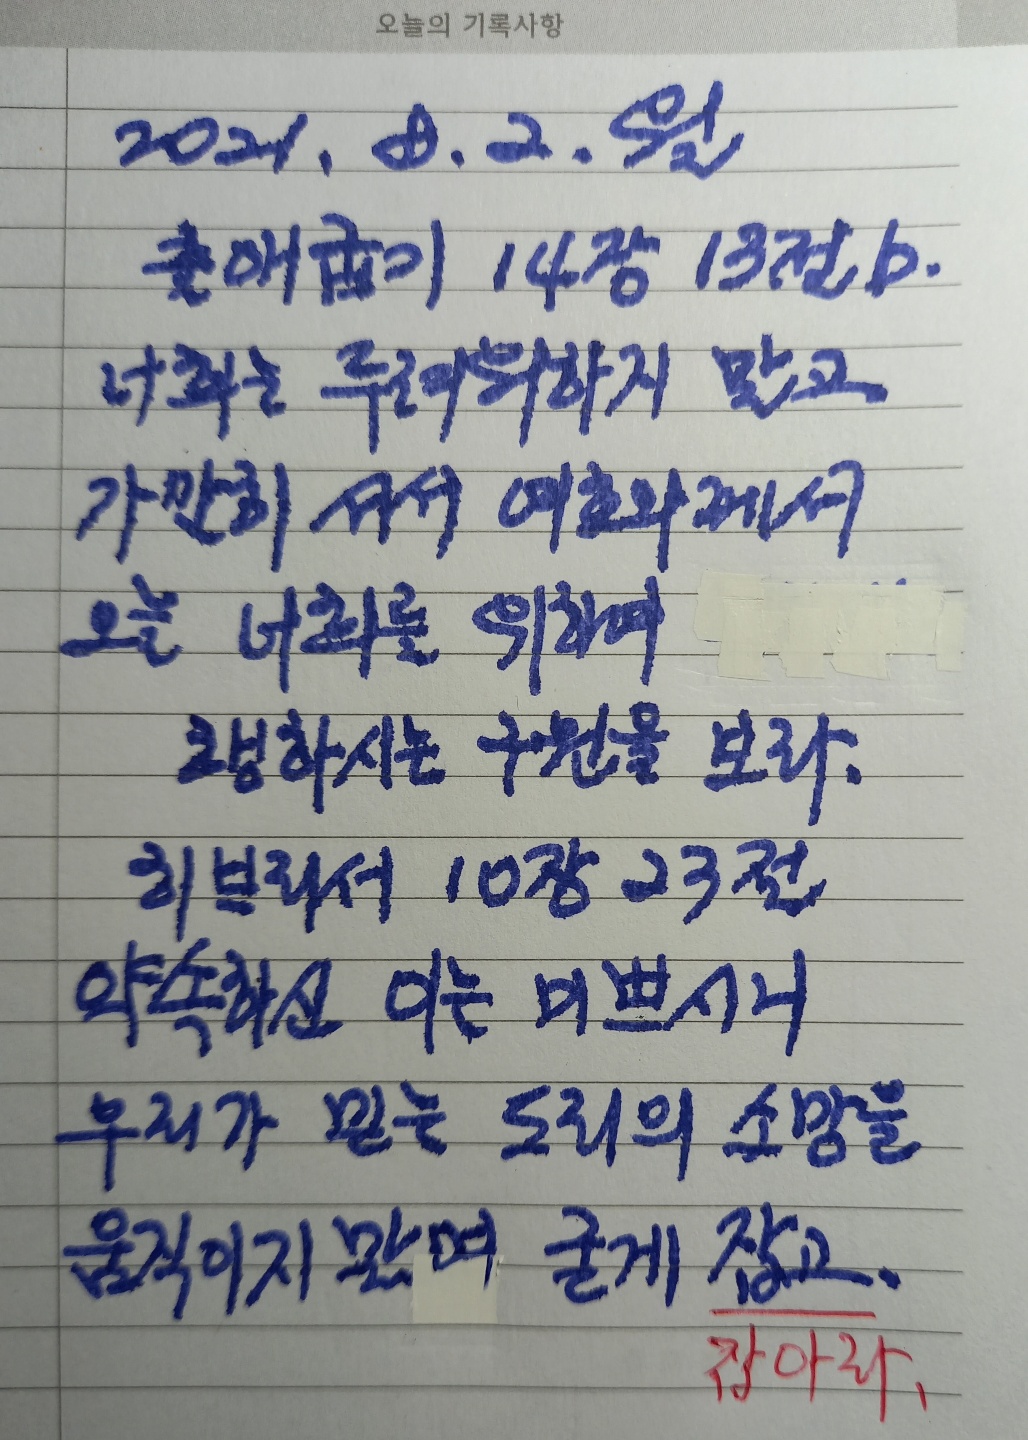 오늘의 기록사항
2021. 8. 2. 월
출애굽기 14장 13절 b.
너희는 두려워하지 말고
가만히 서서 여호와께서
오늘 너희를 위하여
행하시는 구원을 보라.
히브리서 10장 23절
약속하신 이는 미쁘시니
우리가 믿는 도리의 소망을
움직이지 말며 굳게 잡고.
잡아라.